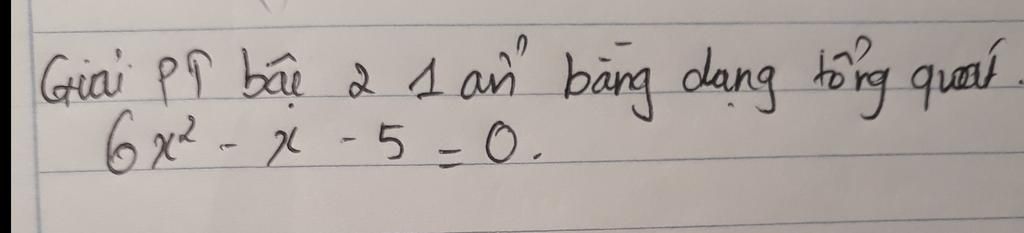 Giải PT bậc 2 1 ẩn bằng dạng tổng quát.
6x² - x - 5 = 0.